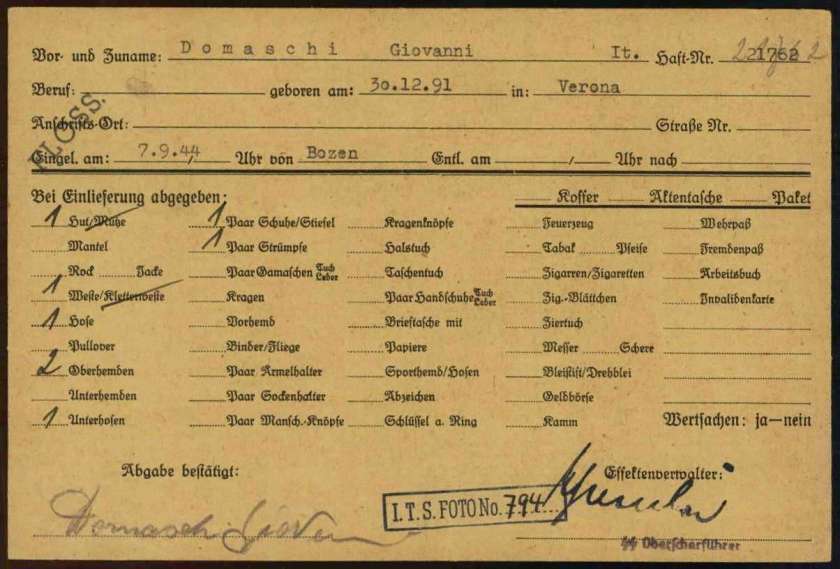 Vor- und Zuname: Domaschi Giovanni It. Haft-Nr. 21762
Beruf: geboren am: 30.12.91 in: Verona
FLOSS.
Anschrifts-Ort: Straße Nr.
Eingel. am: 7.9.44 Uhr von Bozen Entl. am / Uhr nach
Bei Einlieferung abgegeben: Koffer Aktentasche Paket
1 Hut/Mütze 1 Paar Schuhe/Stiefel Kragenknöpfe Feuerzeug Wehrpaß
Mantel 1 Paar Strümpfe Halstuch Tabak Pfeife Fremdenpaß
Rock Jacke Paar Gamaschen Tuch Leder Taschentuch Zigarren/Zigaretten Arbeitsbuch
1 Weste/Kletterweste Kragen Paar Handschuhe Tuch Leder Zig.-Blättchen Invalidenkarte
1 Hose Vorhemd Brieftasche mit Ziertuch
Pullover Binder/Fliege Papiere Messer Schere
2 Oberhemden Paar Ärmelhalter Sporthemd/Hosen Bleistift/Drehblei
Unterhemden Paar Sockenhalter Abzeichen Geldbörse
1 Unterhosen Paar Mansch.-Knöpfe Schlüssel a. Ring Kamm Wertsachen: ja—nein
Abgabe bestätigt: Effektenverwalter:
I.T.S. FOTO No. 794
Domasch Giovan
SS Oberscharführer